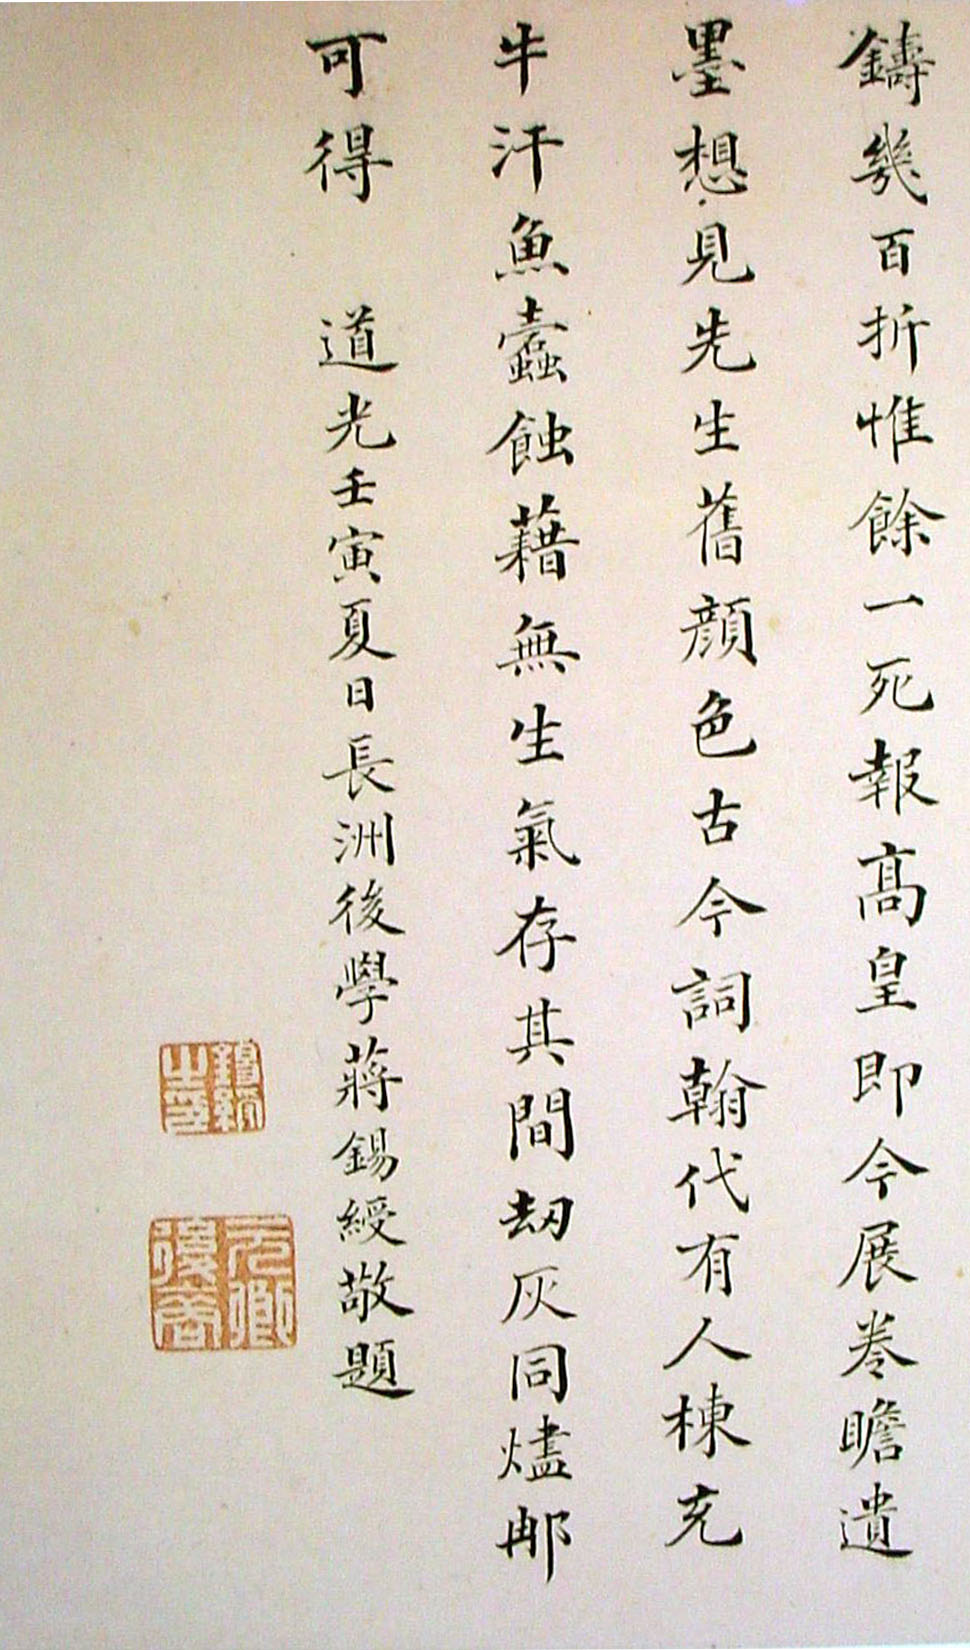 鑄幾百折惟餘一死報髙皇即今展卷瞻遺
墨想見先生舊顔色古今詞翰代有人棟充
牛汗魚蠹蝕藉無生氣存其間劫灰同燼那
可得　道光壬寅夏日長洲後學蔣錫綬敬題
錫綬之印
元卿